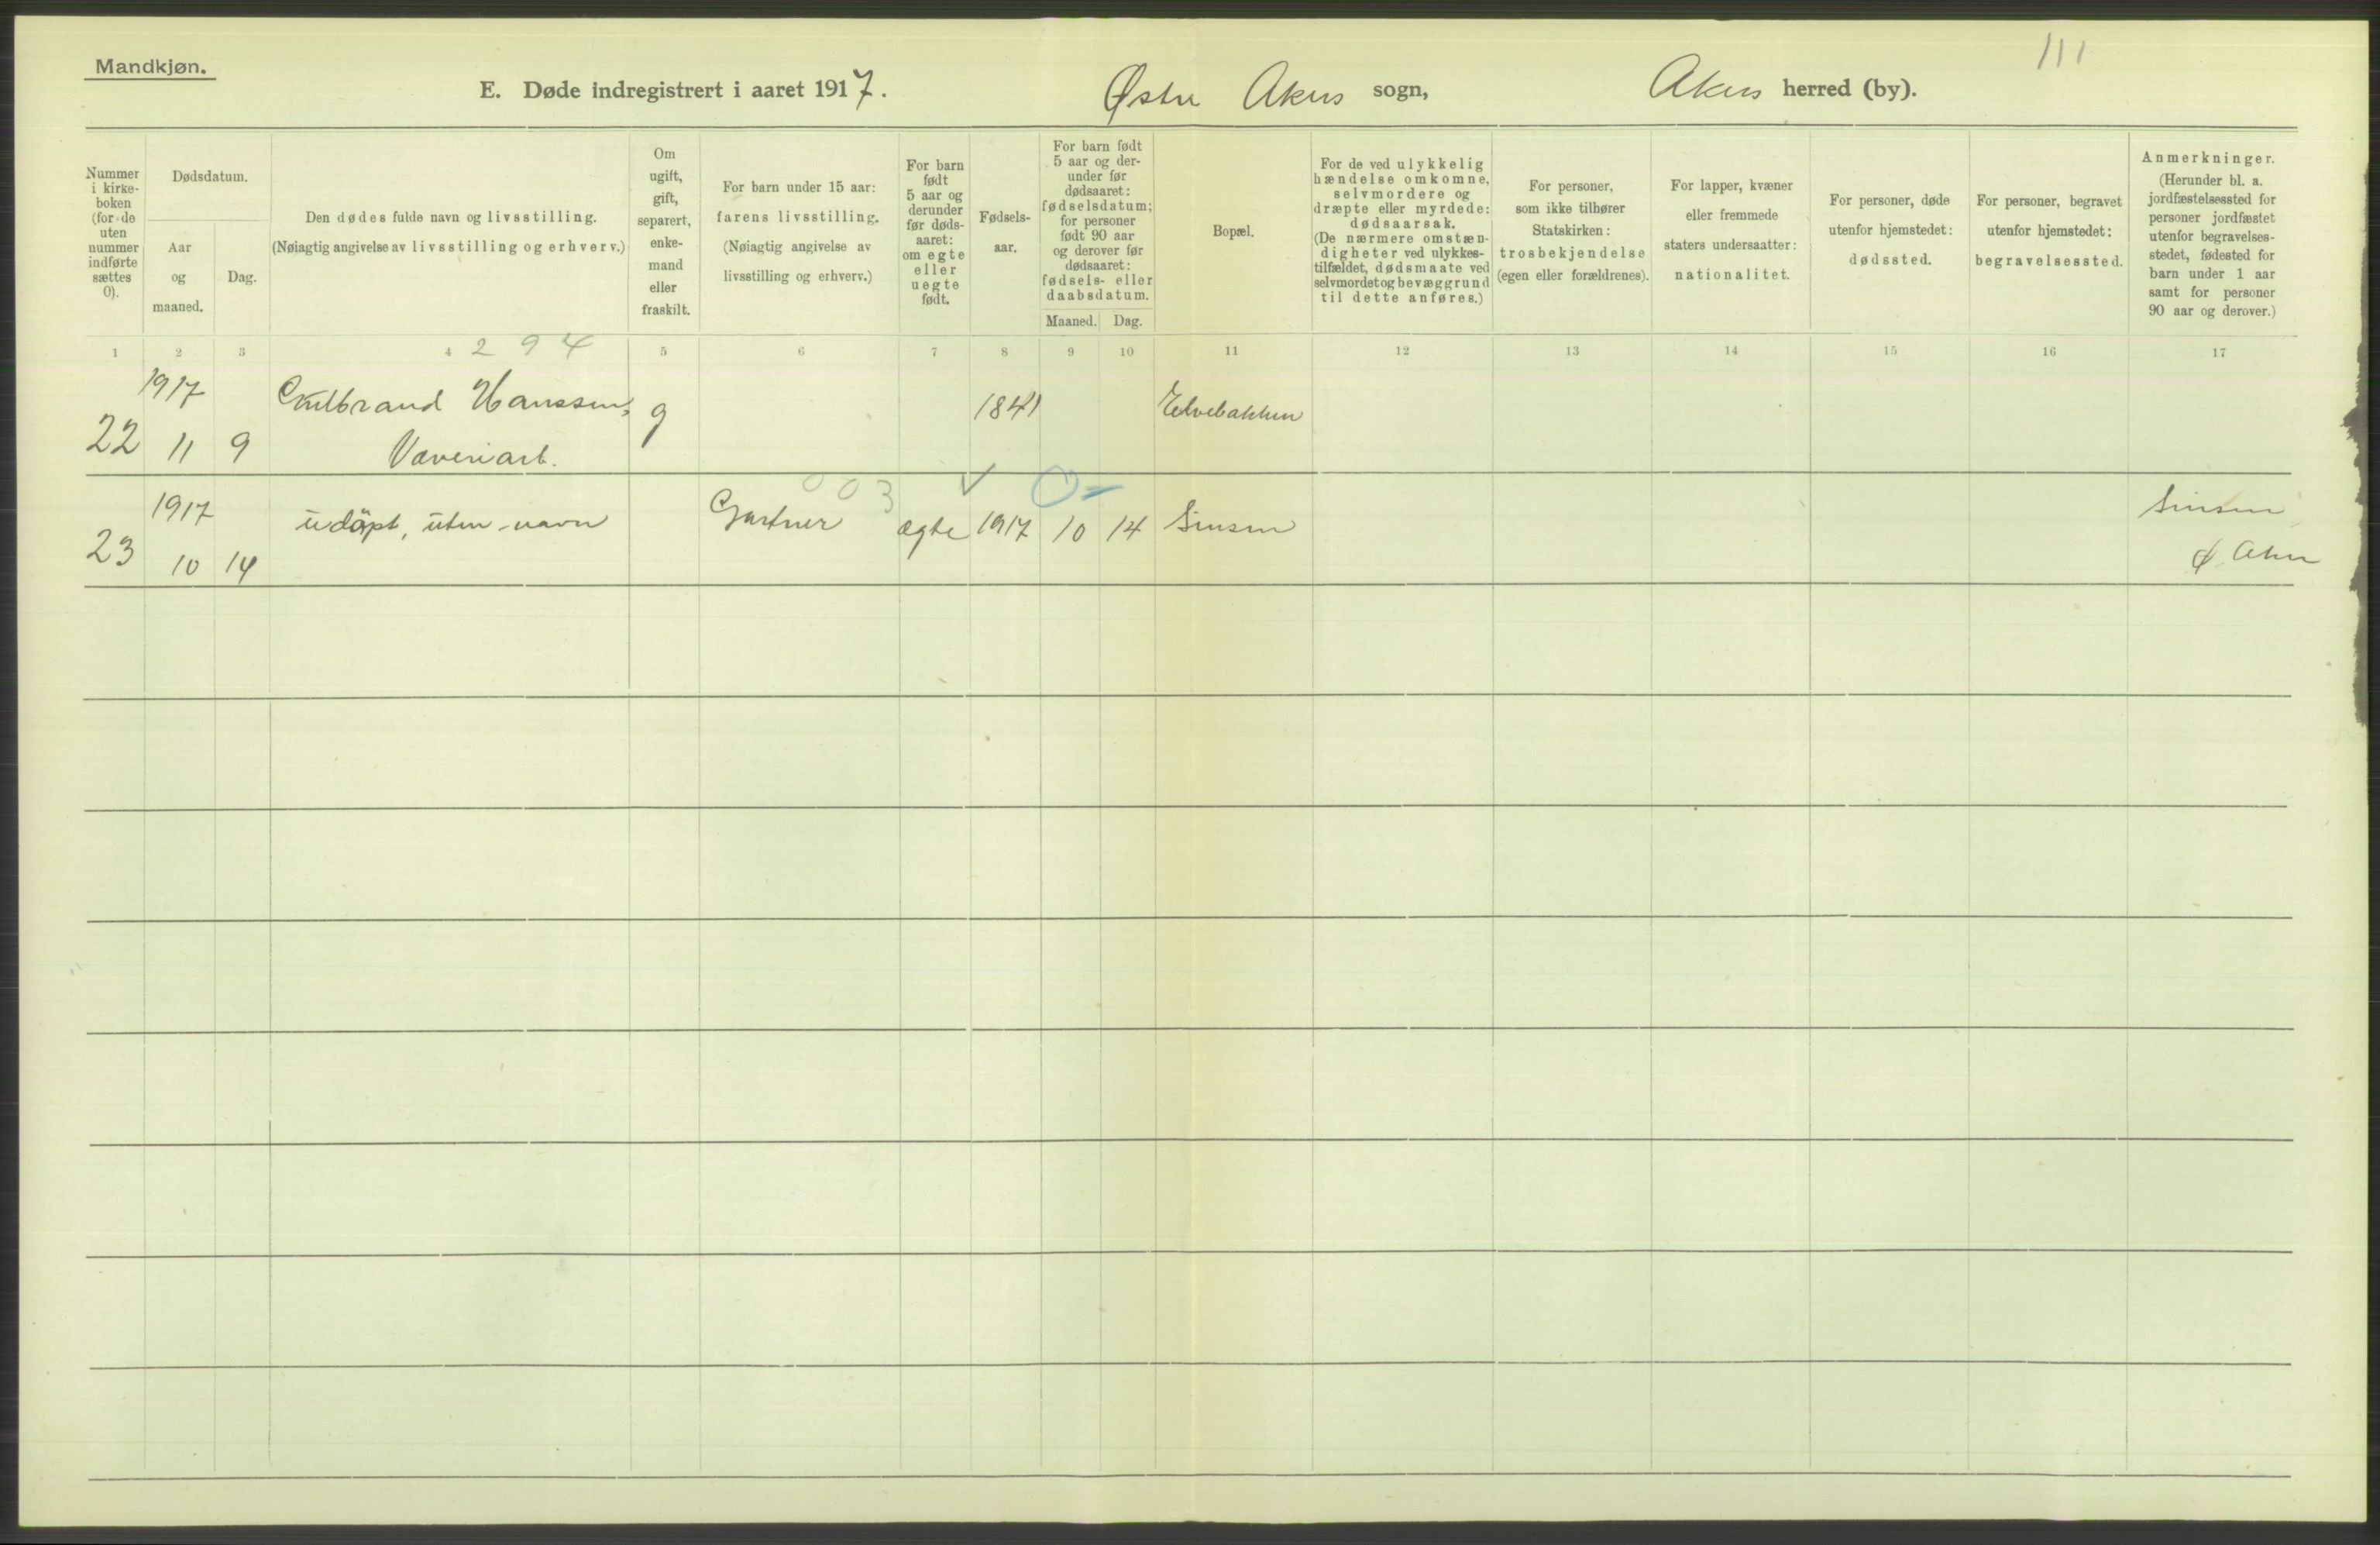 Mandkjøn.
111
E. Døde indregistrert i aaret 1917. Østre Akers sogn, Akers herred (by).
Nummer i kirke- boken (for de uten nummer indførte sættes 0).
Dødsdatum.
Aar og maaned.
Dag.
Den dødes fulde navn og livsstilling.
(Nøiagtig angivelse av livsstilling og erhverv.)
Om ugift, gift, separert, enke- mand eller fraskilt.
For barn under 15 aar:
farens livsstilling.
(Nøiagtig angivelse av
livsstilling og erhverv.)
For barn født 5 aar og derunder før døds- aaret: om egte eller uegte født.
Fødsels- aar.
For barn født 5 aar og der- under før dødsaaret: fødselsdatum; for personer født 90 aar og derover før dødsaaret: fødsels- eller daabsdatum.
Maaned. Dag.
Bopæl.
For de ved ulykkelig hændelse omkomne, selvmordere og dræpte eller myrdede: dødsaarsak. (De nærmere omstæn- digheter ved ulykkes- tilfældet, dødsmaate ved selvmordet og bevæggrund til dette anføres.)
For personer, som ikke tilhører Statskirken: trosbekjendelse (egen eller forældrenes).
For lapper, kvæner eller fremmede staters undersaatter: nationalitet.
For personer, døde utenfor hjemstedet: dødssted.
For personer, begravet utenfor hjemstedet: begravelsessted.
Anmerkninger. (Herunder bl. a. jordfæstelsessted for personer jordfæstet utenfor begravelses- stedet, fødested for barn under 1 aar samt for personer 90 aar og derover.)
1 2 3 4 5 6 7 8 9 10 11 12 13 14 15 16 17
294
1917 Gulbrand Hanssen, g 1841 Elvebakken
22 11 9 Væveriarb.
003
1917 udöpt, uten navn Gartner ægte 1917 10 14 Sinsen Sinsen
23 10 14 Ø. Aker